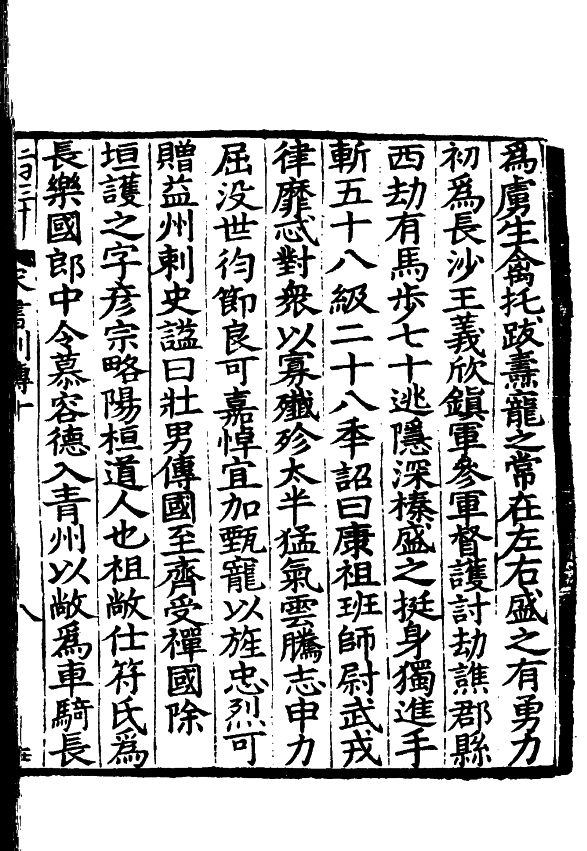 為虜生禽托跋燾寵之常在左右盛之有勇力
初為長沙王義欣鎮軍參軍督護討劫譙郡縣
西劫有馬步七十逃隱深榛盛之挺身獨進手
斬五十八級二十八年詔曰康祖班師尉武戎
律靡忒對衆以寡殲殄太半猛氣雲騰志申力
屈没世徇節良可嘉悼宜加甄寵以旌忠烈可
贈益州刺史謚曰壯男傳國至齊受禪國除
垣護之字彥宗略陽桓道人也祖敞仕苻氏為
長樂國郎中令慕容德入青州以敞為車騎長
八